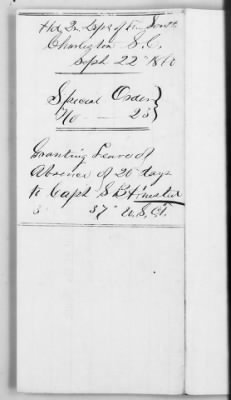 Hd Qrs Dept of the South
Charleston S.C.
Sept 22" 186
Special Order
No — 25
Granting Leave of
Absence of 20 days
to Capt S B
37" U.S.C.T.